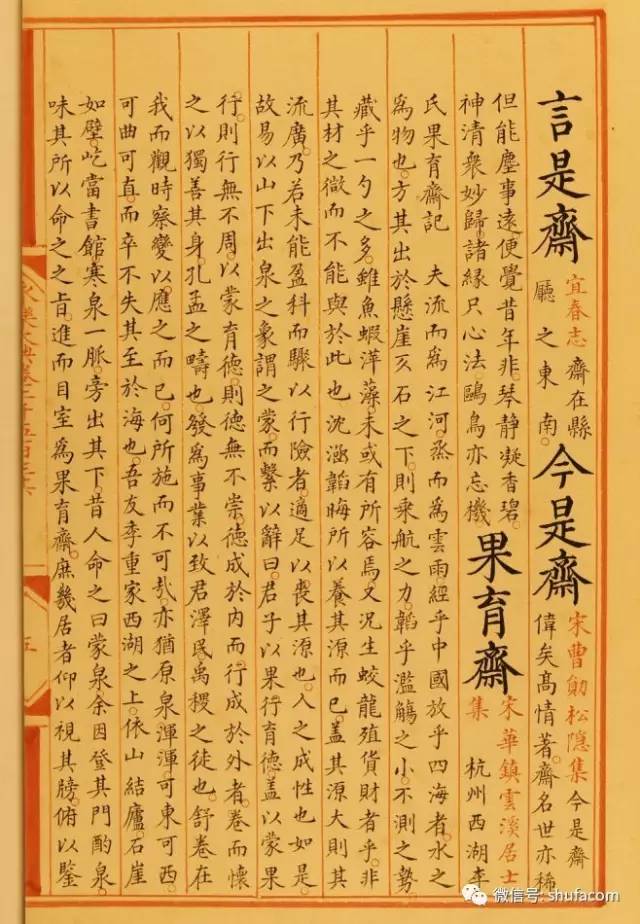 言是齋 宜春志 齋在縣
廳之東南。
今是齋 宋曹勛松隱集 今是齋
偉矣高情著。齋名世亦稀
但能塵事遠。便覺昔年非。琴静凝香碧。
神清衆妙歸。諸緣只心法。鷗鳥亦忘機
果育齋 宋華鎮雲溪居士
集 杭州西湖李
氏果育齋記 夫流而爲江河。烝而爲雲雨。經乎中國放乎四海者。水之
爲物也。方其出於懸崖亥石之下。則乘航之力。韜乎濫觴之小。不測之勢
藏乎一勺之多。雖魚蝦萍藻。未或有所容焉。又況生蛟龍殖貨財者乎。非
其材之而不能與於此也沈涵韜晦所以養其源而已。盖其源大則其
流廣。乃若未能盈科而驟以行險者。適足以喪其源也。人之成性也如是
故易以山下出泉之象謂之蒙。而繫以辭曰。君子以果行育德。盖以蒙果
行。則行無不周。以蒙育德。則德無不崇。德成於内而行成於外者。卷而懷
之以獨善其身。孔孟之疇也。發爲事業以致君澤民。禹稷之徒也。舒卷在
我而觀時察變。以應之而已。何所施而不可哉。亦猶原泉渾渾。可東可西
可曲可直。而卒不失其至於海也。吾友李重家西湖之上。依山結廬。石崖
如壁。屹當書館。寒泉一脈。旁出其下。昔人命之曰蒙泉。余因登其門酌泉。
味其所以命之之旨。進而目室爲果育齋。庶幾居者仰以視其牓。俯以鑒
永樂大典卷二千五百三十六
五
微信号: shufacom